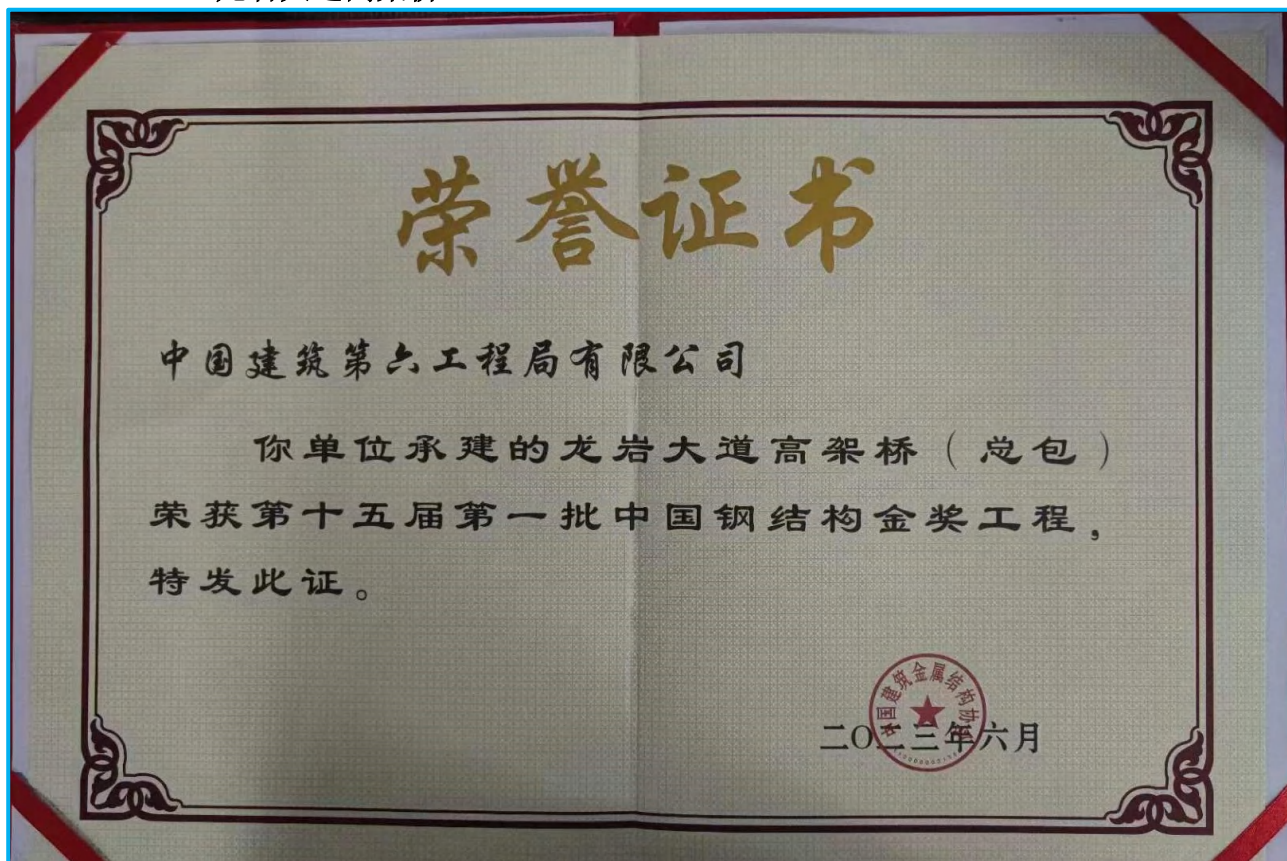 荣誉证书
中国建筑第六工程局有限公司
你单位承建的龙岩大道高架桥（总包）
荣获第十五届第一批中国钢结构金奖工程，
特发此证。
中国建筑金属结构协会
二〇二三年六月